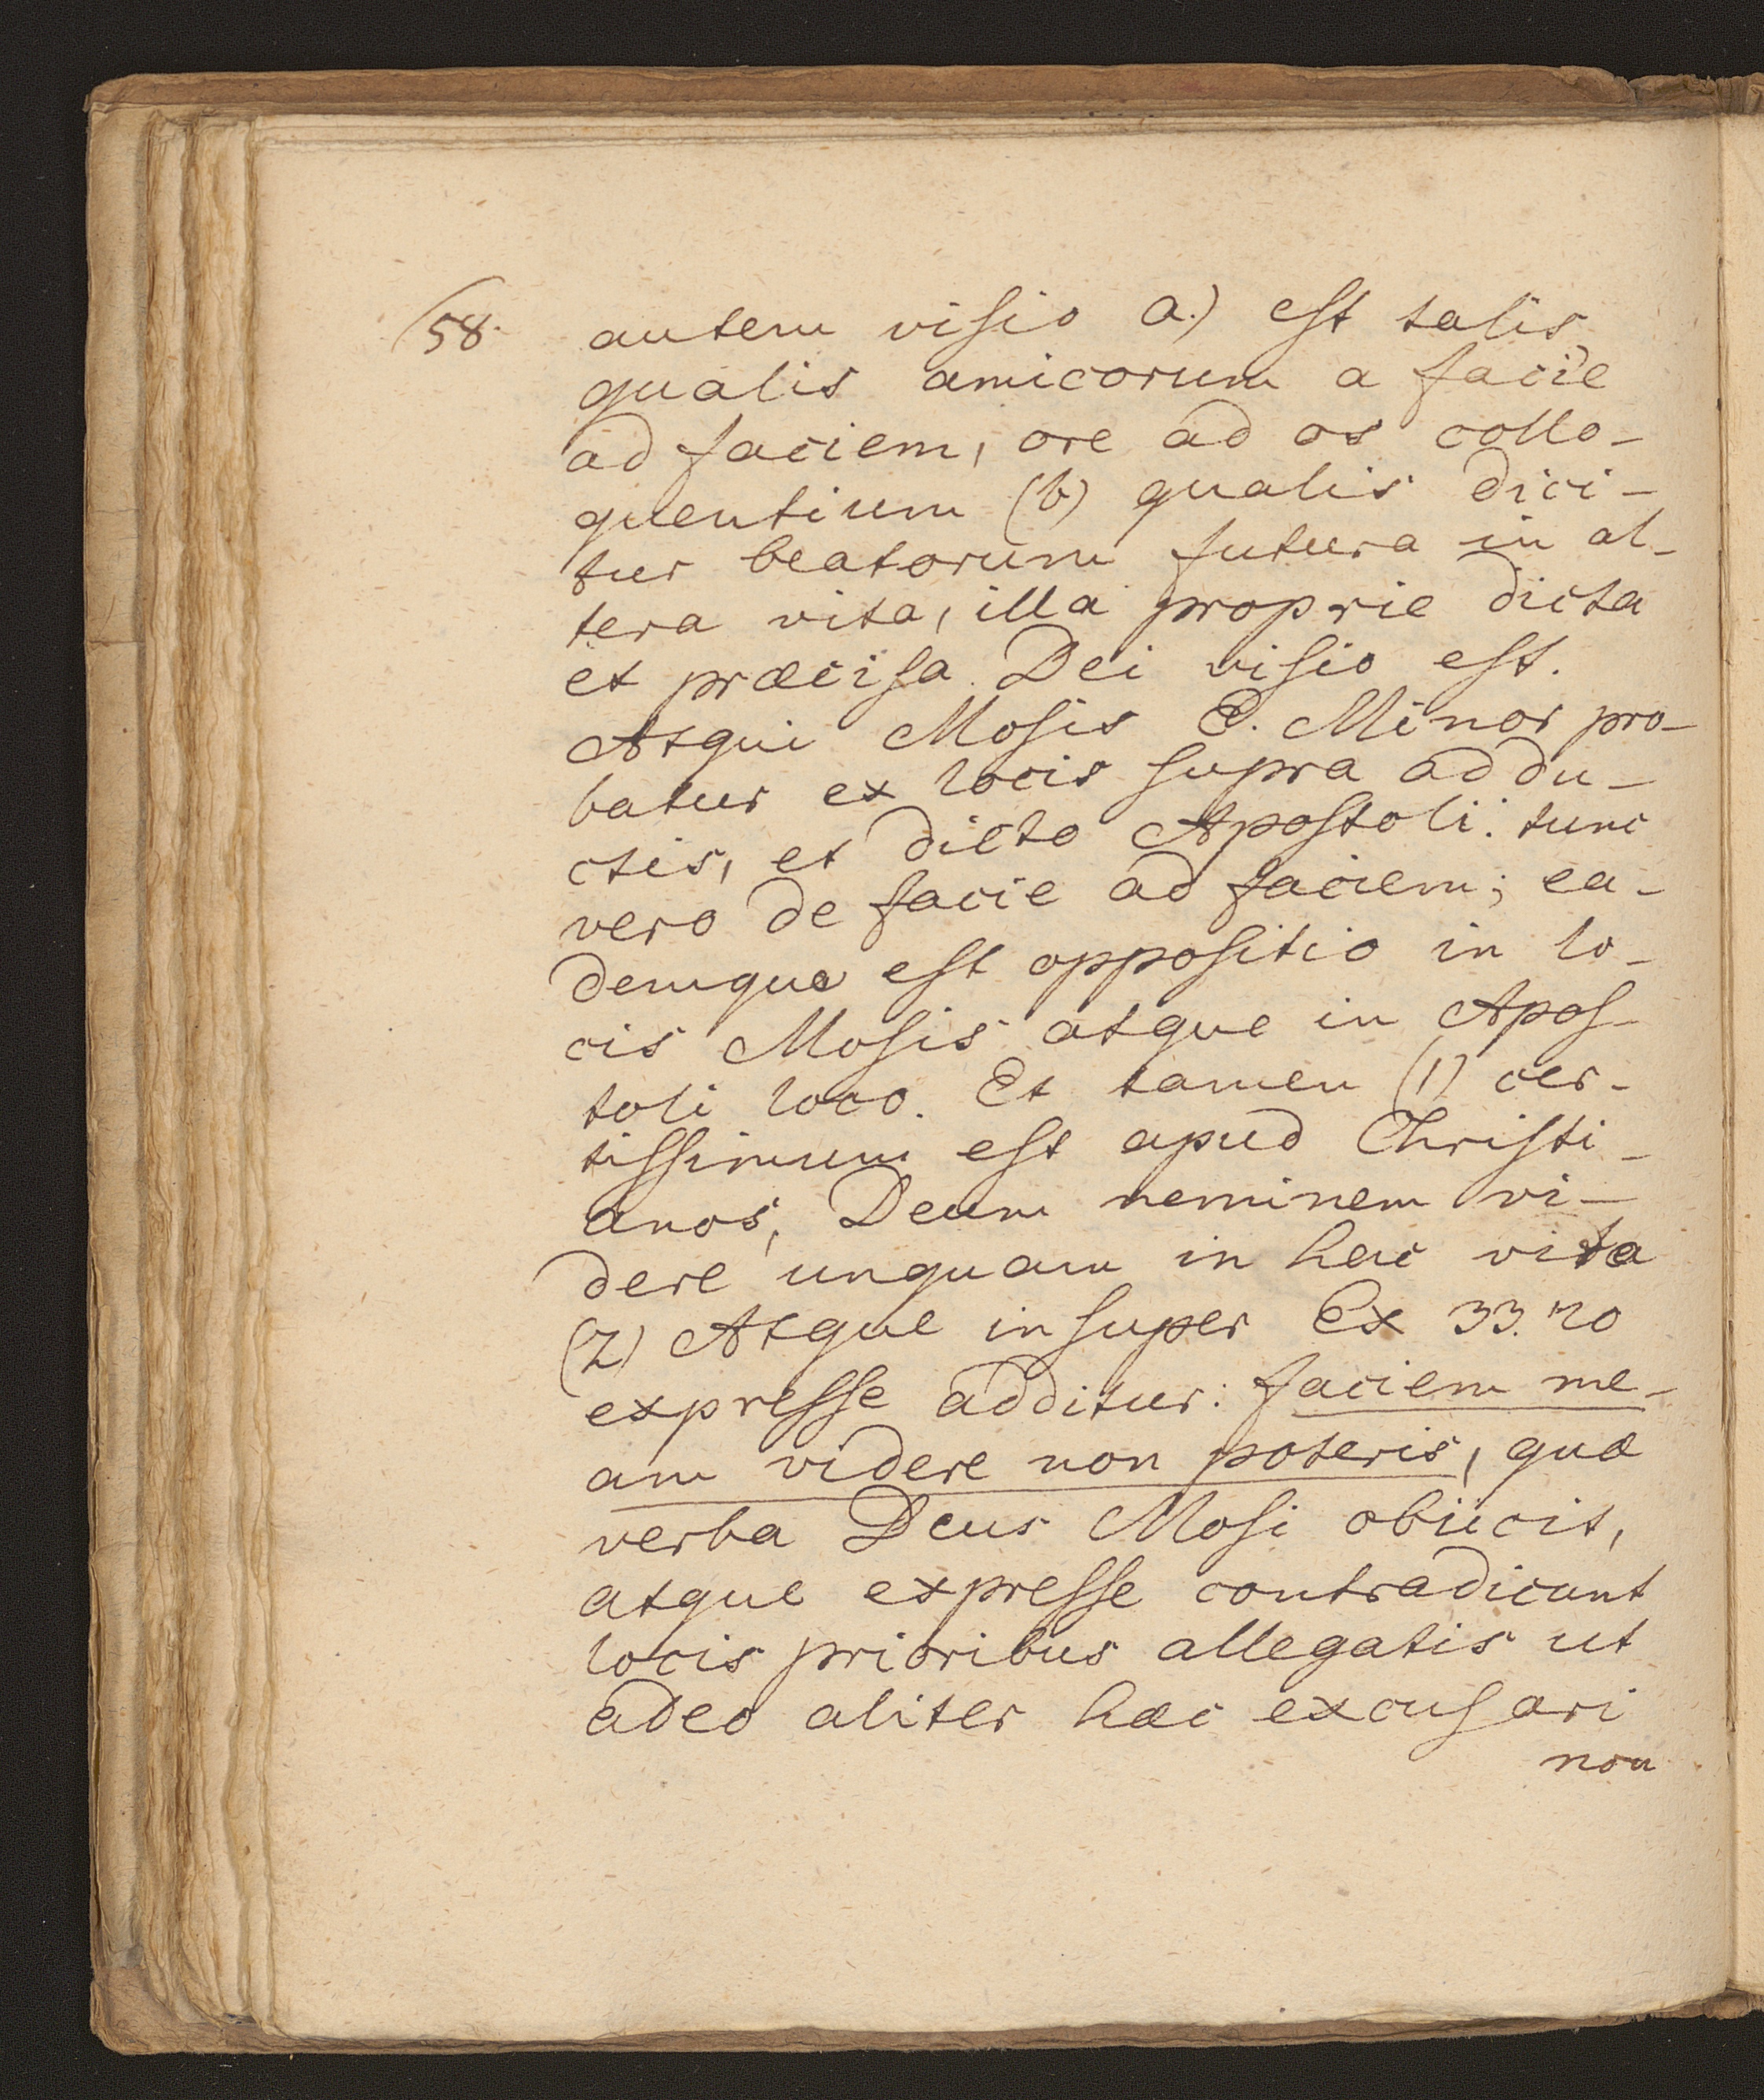 58.
autem visio a.) est talis,
qualis amicorum a facie
ad faciem, ore ad os collo-
quentium (b) qualis dici-
tur beatorum futura in al-
tera vita, illa proprie dicta
et præcisa Dei visio est.
Atqui Mosis E. Minor pro-
batur ex locis supra addu-
ctis, et dicto Apostoli: tunc
vero de facie ad faciem; ea-
demque est oppositio in lo-
cis Mosis atque in Apos-
toli loco. Et tamen (1) cer-
tissimum est apud Christi-
anos, Deum neminem vi-
dere unquam in hac vita
(2) Atque insuper Ex 33. 20
expresse additur: faciem me-
am videre non poteris, quæ
verba Deus Mosi obiicit,
atque expresse contradicunt
locis prioribus allegatis ut
adeo aliter hæc excusari
non